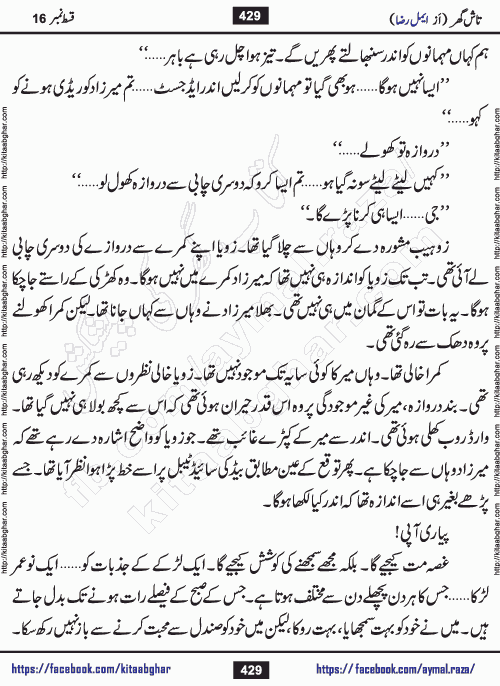 تاش گھر (از ایمل رضا) 429 قسط نمبر 16
ہم کہاں مہمانوں کو اندر سنبھالتے پھریں گے۔ تیز ہوا چل رہی ہے باہر......‘‘
’’ایسا نہیں ہوگا......ہو بھی گیا تو مہمانوں کو کر لیں اندر ایڈجسٹ......تم میر زاد کو ریڈی ہونے کو
کہو......‘‘
’’دروازہ تو کھولے......‘‘
’’کہیں لیٹے لیٹے سو نہ گیا ہو......تم ایسا کرو کہ دوسری چابی سے دروازہ کھول لو......‘‘
’’جی......ایسا ہی کرنا پڑے گا۔‘‘
زوہیب مشورہ دے کر وہاں سے چلا گیا تھا۔ زویا اپنے کمرے سے دروازے کی دوسری چابی
لے آئی تھی۔ تب تک زویا کو اندازہ ہی نہیں تھا کہ میر زاد کمرے میں نہیں ہوگا۔ وہ کھڑکی کے راستے جا چکا
ہوگا۔ یہ بات تو اس کے گمان میں ہی نہیں تھی۔ بھلا میر زاد نے وہاں سے کہاں جانا تھا۔ لیکن کمرا کھولنے
پر وہ دھک سے رہ گئی تھی۔
کمرا خالی تھا۔ وہاں میر کا کوئی سایہ تک موجود نہیں تھا۔ زویا خالی نظروں سے کمرے کو دیکھ رہی
تھی۔ بند دروازہ، میر کی غیر موجودگی پر وہ اس قدر حیران ہوئی تھی کہ اس سے کچھ بولا ہی نہیں گیا تھا۔
وارڈ روب کھلی ہوئی تھی۔ اندر سے میر کے کپڑے غائب تھے۔ جو زویا کو واضح اشارہ دے رہے تھے کہ
میر زاد وہاں سے جا چکا ہے۔ پھر توقع کے عین مطابق بیڈ کی سائیڈ ٹیبل پر اسے خط پڑا ہوا نظر آیا تھا۔ جسے
پڑھے بغیر ہی اسے اندازہ تھا کہ اندر کیا لکھا ہوگا۔
پیاری آپی!
غصہ مت کیجیے گا۔ بلکہ مجھے سمجھنے کی کوشش کیجیے گا۔ ایک لڑکے کے جذبات کو......ایک نو عمر
لڑکا......جس کا ہر دن پچھلے دن سے مختلف ہوتا ہے۔ جس کے صبح کے فیصلے رات ہونے تک بدل جاتے
ہیں۔ میں نے خود کو بہت سمجھایا، بہت روکا، لیکن میں خود کو صندل سے محبت کرنے سے باز نہیں رکھ سکا۔
https://facebook.com/kitaabghar 429 https://facebook.com/aymal.raza/
http://kitaabghar.com http://kitaabghar.com http://kitaabghar.com http://kitaabghar.com http://kitaabghar.com
http://kitaabghar.com http://kitaabghar.com http://kitaabghar.com http://kitaabghar.com http://kitaabghar.com